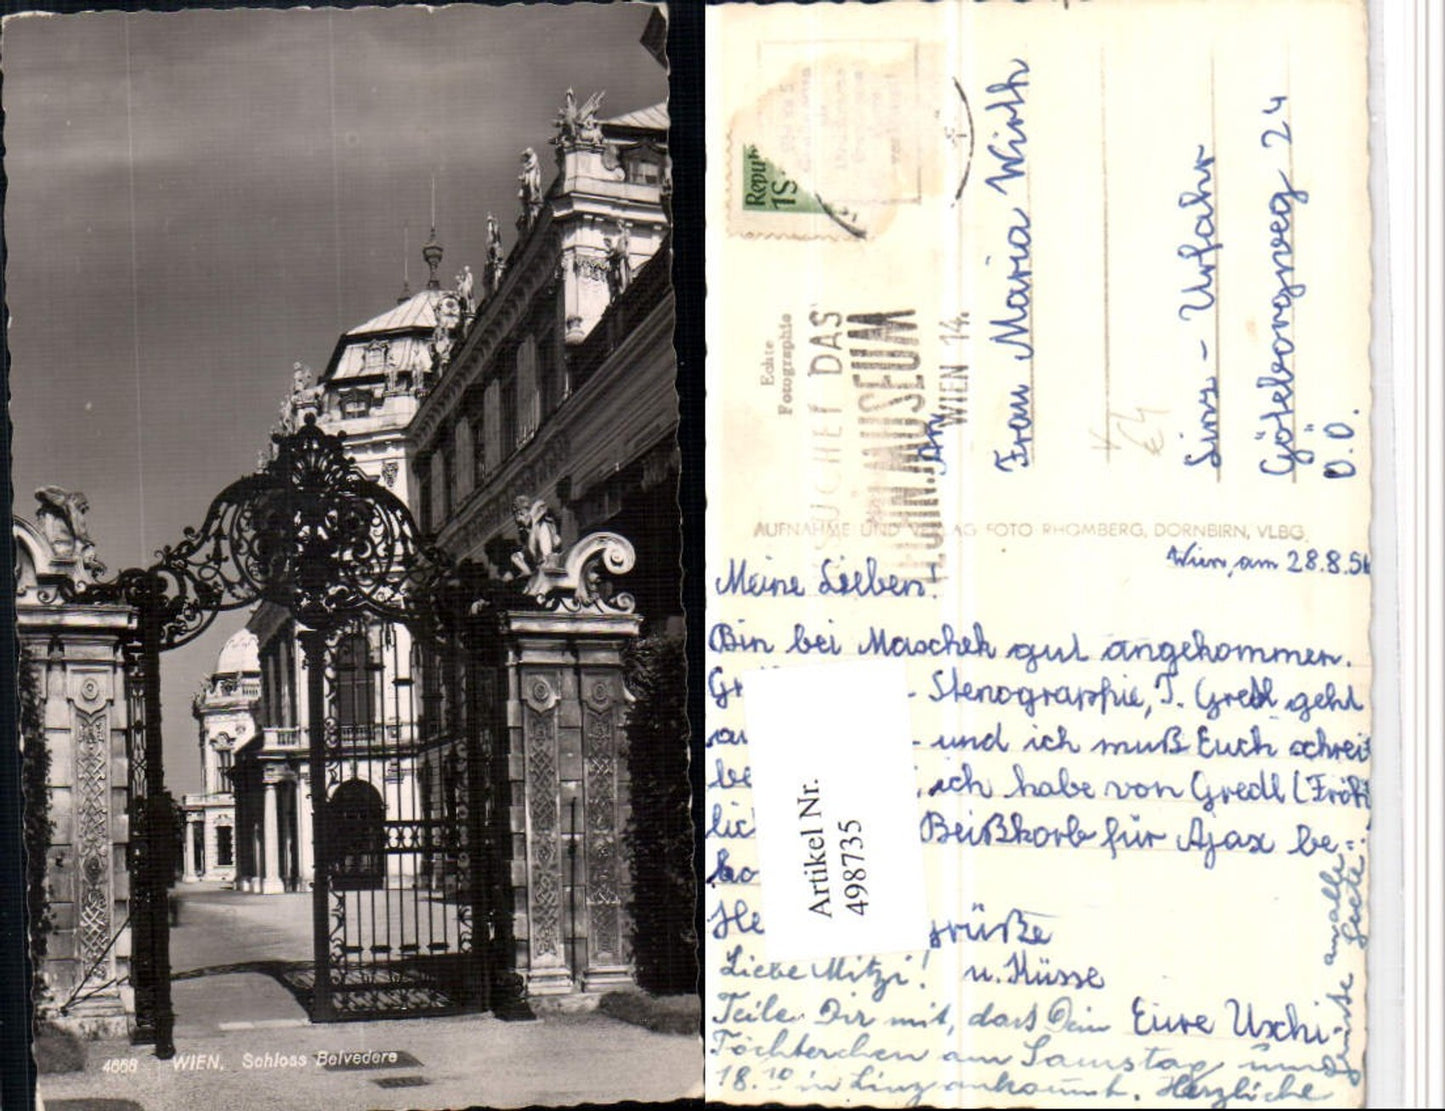 4668 WIEN, Schloss Belvedere
Repu
1S
Echte
Fotografie
SUCHET DAS
TECHN.MUSEUM
WIEN 14.
An
Frau Maria Wirth
Linz - Urfahr
Göteborgweg 24
O.Ö.
AUFNAHME UND VERLAG FOTO RHOMBERG, DORNBIRN, VLBG.
Wien, am 28.8.56
Meine Lieben!
Bin bei Maschek gut angekommen.
Gr - Stenographie, T. Gredl geht
au - und ich muß Euch schrei
be , ich habe von Gredl (Fröh
lic Beißkorb für Ajax be-
ko
He grüße
u. Küsse
Eure Uschi.
Liebe Mitzi!
Teile Dir mit, dass Dein
Töchterchen am Samstag um
18.10 in Linz ankommt. Herzliche
Grüße an alle
Artikel Nr.
498735